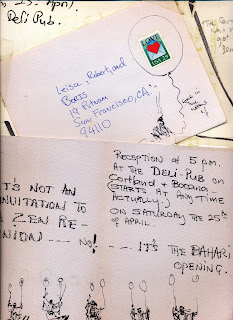 25, Apr!
Deli Pub.
LOVE
Leisa, Robert, and
Boris
19 Putnam
San Francisco, CA.
94110
IT'S NOT AN
INVITATION TO
A ZEN RE-
NION --- NO!
RECEPTION at 5 pm.
AT the DELI-PUB on
Cortland + Bocana -
STARTS AT ANY TIME
ACTUALLY,)
ON SATURDAY THE 25th
of APRIL.
--- IT'S THE BAHARI
OPENING.